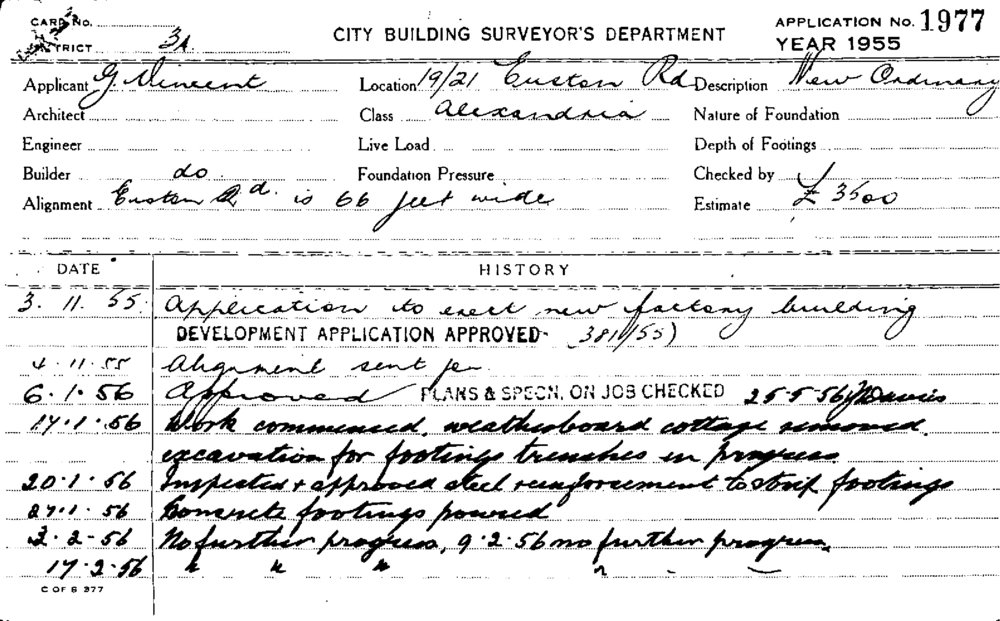 CARD No.
DISTRICT 3A
CITY BUILDING SURVEYOR'S DEPARTMENT
APPLICATION No. 1977
YEAR 1955
Applicant G. Vincent Location 19/21 Euston Rd Description New Ordinary
Architect Class Alexandria Nature of Foundation
Engineer Live Load Depth of Footings
Builder do Foundation Pressure Checked by
Alignment Euston Rd. is 66 feet wide Estimate £ 3500
DATE HISTORY
3. 11. 55. Application to erect new factory building
DEVELOPMENT APPLICATION APPROVED- 381/55)
4. 11. 55 Alignment sent
6. 1. 56 Approved PLANS & SPECN. ON JOB CHECKED 25-5-56 Davies
17. 1. 56 Work commenced, weatherboard cottage removed.
excavation for footings trenches in progress
20. 1. 56 Inspected + approved steel reinforcement to strip footings
27. 1. 56 Concrete footings poured
3. 2-56 No further progress, 9.2.56 no further progress.
17.2.56 " " " "
C OF S 377